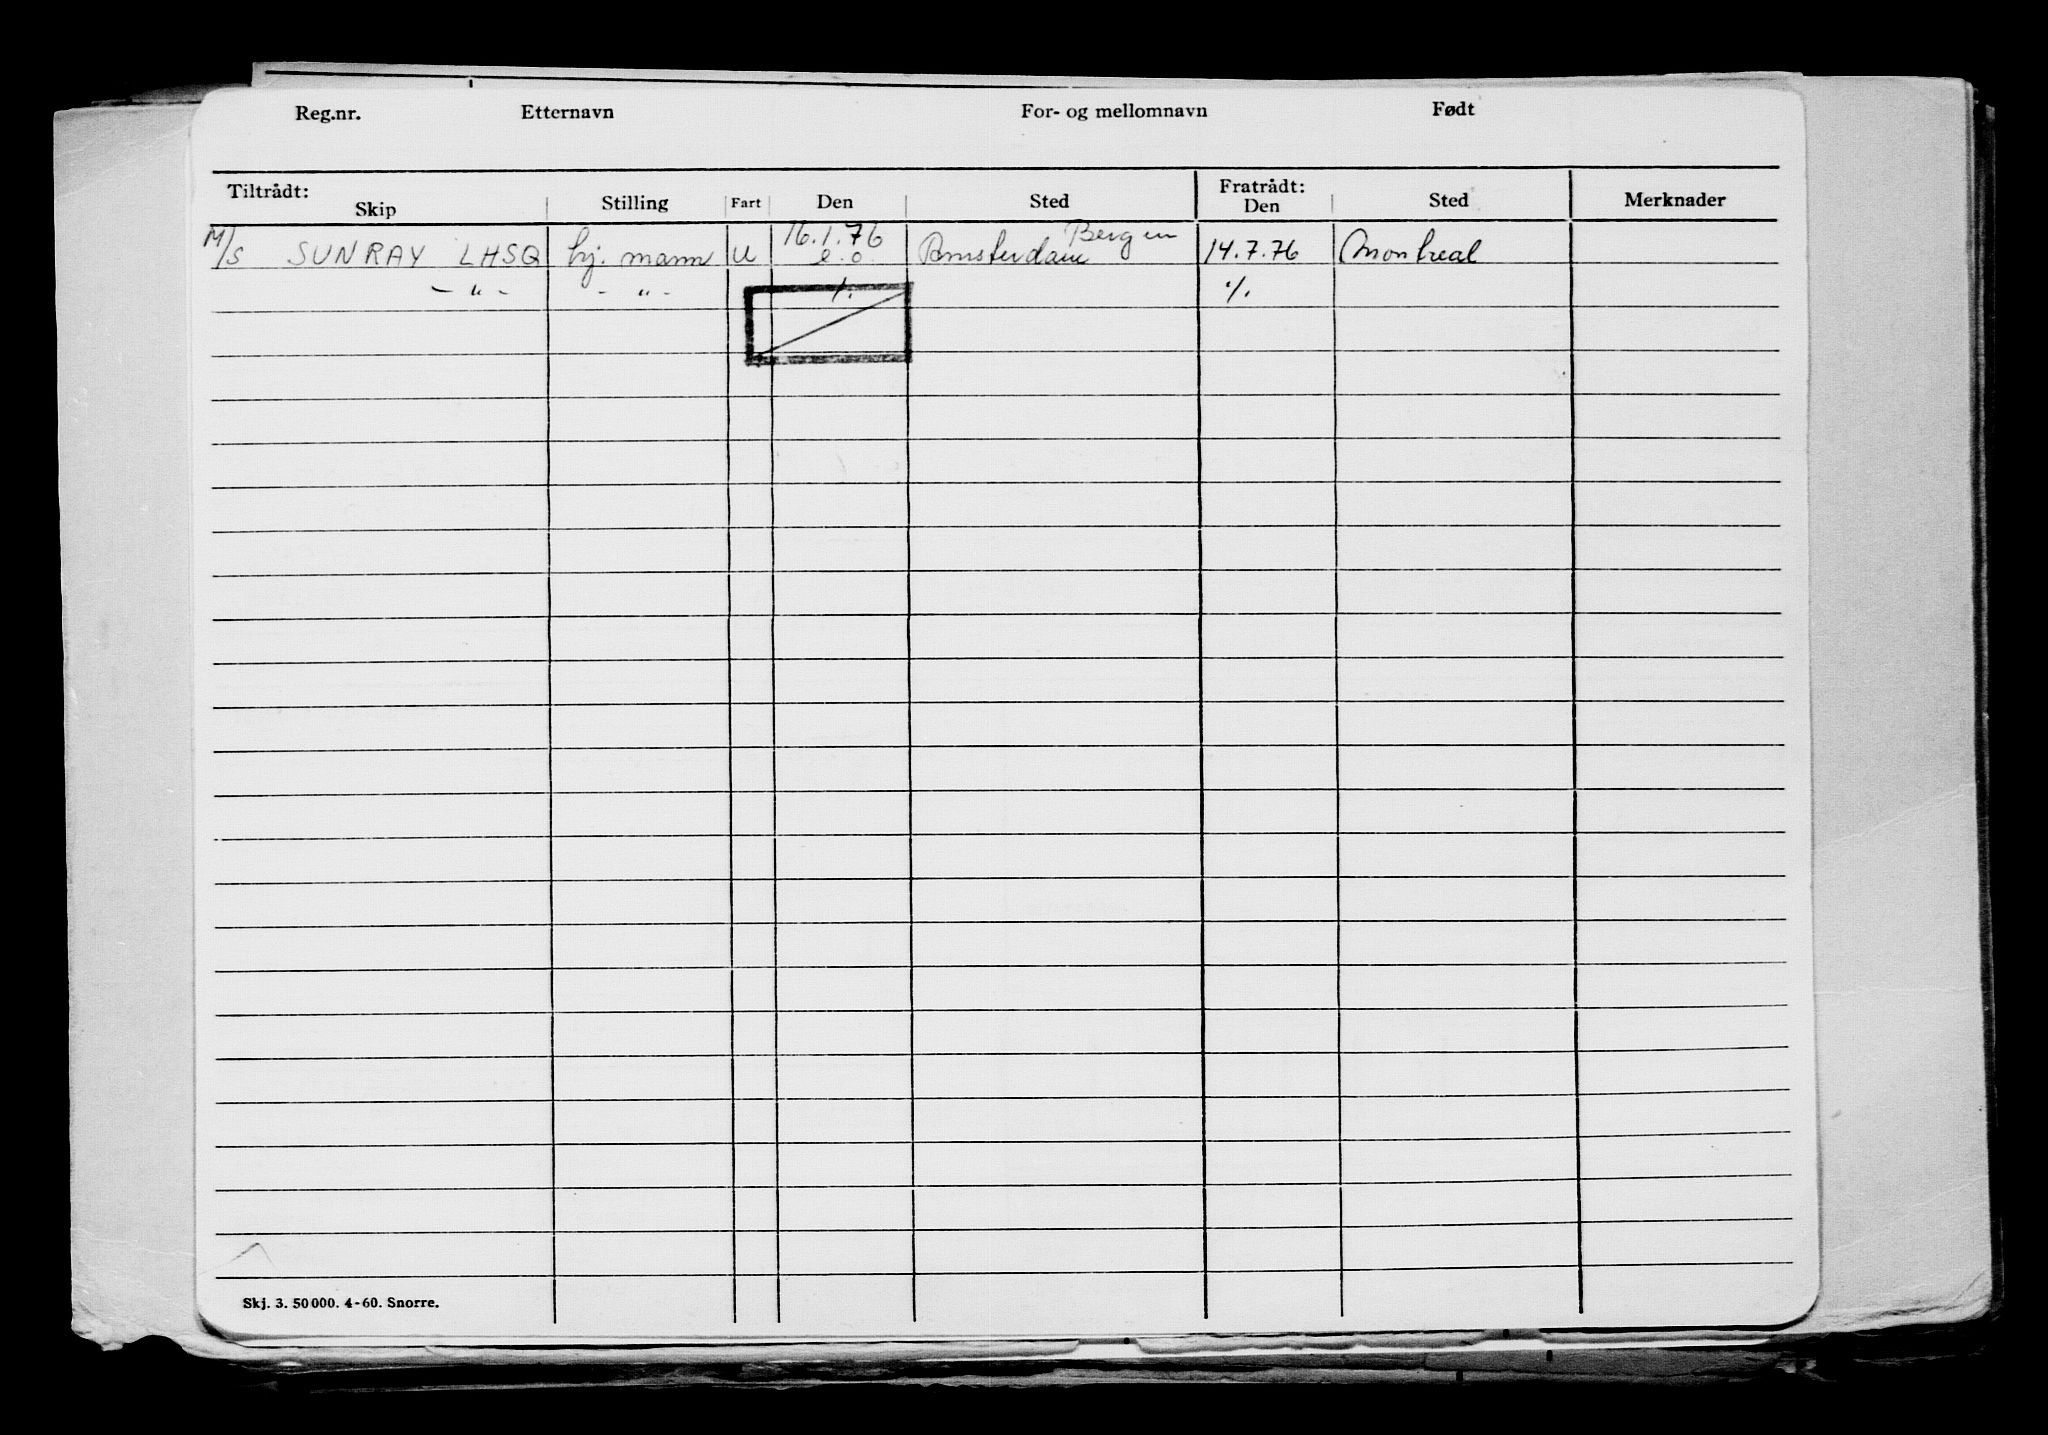 Reg.nr. Etternavn For- og mellomnavn Født
Tiltrådt: Skip Stilling Fart Den Sted Fratrådt: Den Sted Merknader
16.1.76 Bergen
M/S SUNRAY LHSQ hj. mann U e.o. Amsterdam 14.7.76 Montreal
- " - - " - ./. ./.
Skj. 3. 50000. 4-60. Snorre.